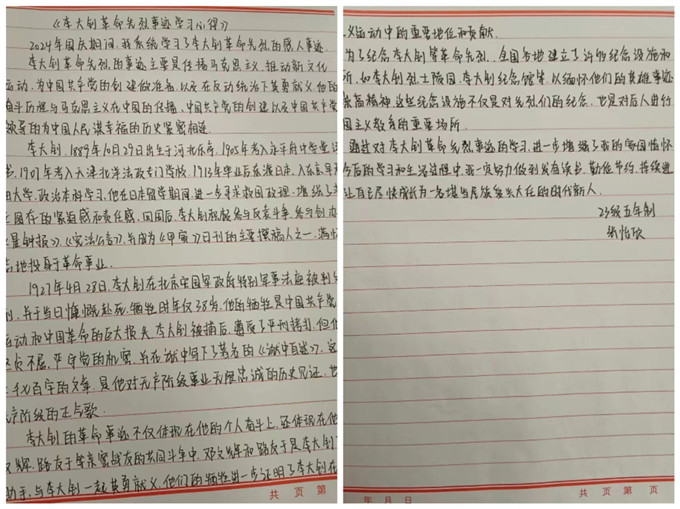 《李大钊革命先烈事迹学习心得》
2024年国庆期间，我系统学习了李大钊革命先烈的感人事迹。
李大钊革命先烈的事迹主要是传播马克思主义，推动新文化
运动，为中国共产党的创建做准备，以及在反动统治下英勇就义。他的
奋斗历程与马克思主义在中国的传播、中国共产党的创建以及中国共产党
领导的为中国人民谋幸福的历史紧密相连。
李大钊，1889年10月29日出生于河北乐亭，1905年考入永平府中学堂
1907年考入天津北洋法政专门学校，1913年毕业后东渡日本，入东京早
田大学，政治本科学习，他在日本留学期间，进一步寻求救国政理，增强了
国存的紧迫感和责任感，回国后，李大钊积极参与反袁斗争，参与创办
晨钟报》、《宪法公言》，并成为《甲寅》日刊的主要撰稿人之一，满怀
志地投身于革命事业。
1927年4月28日，李大钊在北京安国军政府特别军事法庭被判
刑，并于当日慷慨赴死，牺牲时年仅38岁，他的牺牲是中国共产党
运动和中国革命的巨大损失。李大钊被捕后，遭受了严刑拷打，但他
坚贞不屈，严守党的机密，并在狱中写下了著名的《狱中自述》，这
千七百字的文章，是他对无产阶级事业无限忠诚的历史见证，也
产阶级的正气歌。
李大钊的革命事迹不仅体现在他的个人奋斗上，还体现在他
文辉、路友于等亲密战友的共同斗争中，邓文辉和路友于是李大钊
助手，与李大钊一起英勇就义，他们的牺牲进一步证明了李大钊在
义运动中的重要地位和贡献。
为了纪念李大钊等革命先烈，全国各地建立了许多纪念设施和
所，如李大钊烈士陵园、李大钊纪念馆等，以缅怀他们的英雄事迹
崇高精神，这些纪念设施不仅是对先烈们的纪念，也是对后人进行
国主义教育的重要场所。
通过对李大钊革命先烈事迹的学习，进一步增强了我的爱国情怀
今后的学习和生活过程中，我一定努力做到发奋读书，勤俭节约，
让自己尽快成长为一名堪当民族复兴大任的时代新人。
23级五年制
张怡欣
共 页 第
年 月 日
共 页 第 页